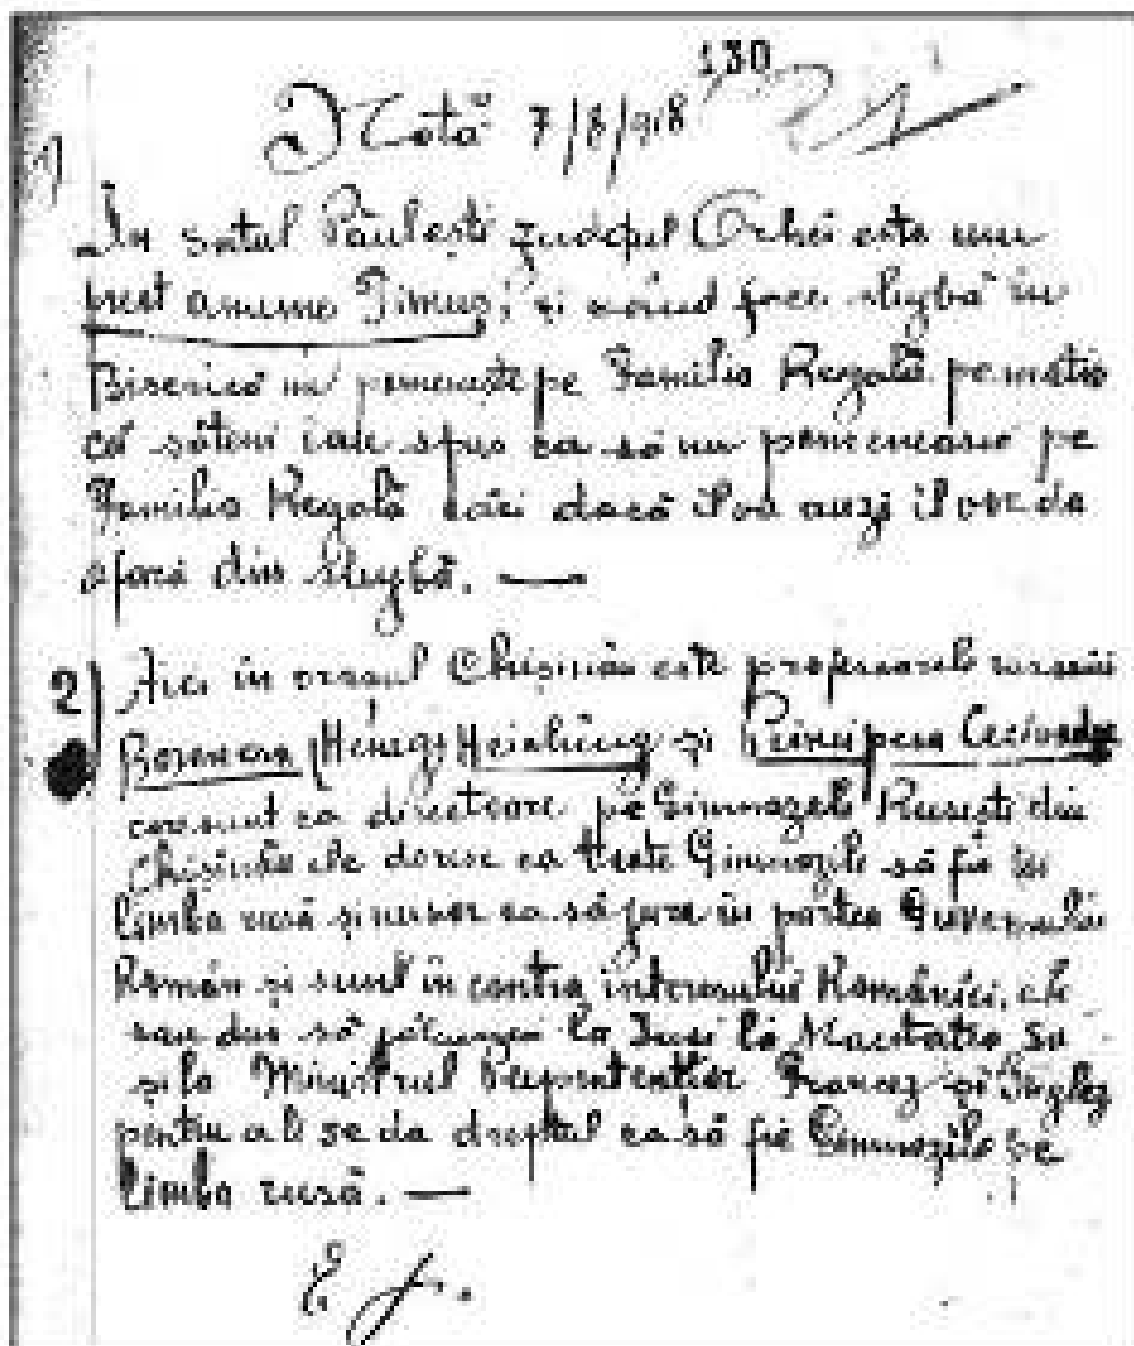 130
Notă 7/8/918
1)
In satul Păulești județul Orhei este un
preot anume Timuș, și când face slujbă în
Biserică nu pomenește pe Familia Regală pe motiv
că săteni iau spus ca să nu pomenească pe
Familia Regală căci dacă îl va auzi îl vor da
afară din slujbă. —
2) Aici in orașul Chișinău este profesoarele
și Principesa
care sunt ca directoare pe Gimnazele Rusești din
Chișinău ele doresc ca toate Gimnazile să fie în
limba rusă și nu vor ca să jure in partea Guvernului
Român și sunt in contra interesului României, ele
sau dus să la Iași la Maestatea Sa
și la Ministrul Francez și Englez
pentru a li se da dreptul ca să fie Gimnazile pe
limba rusă. —